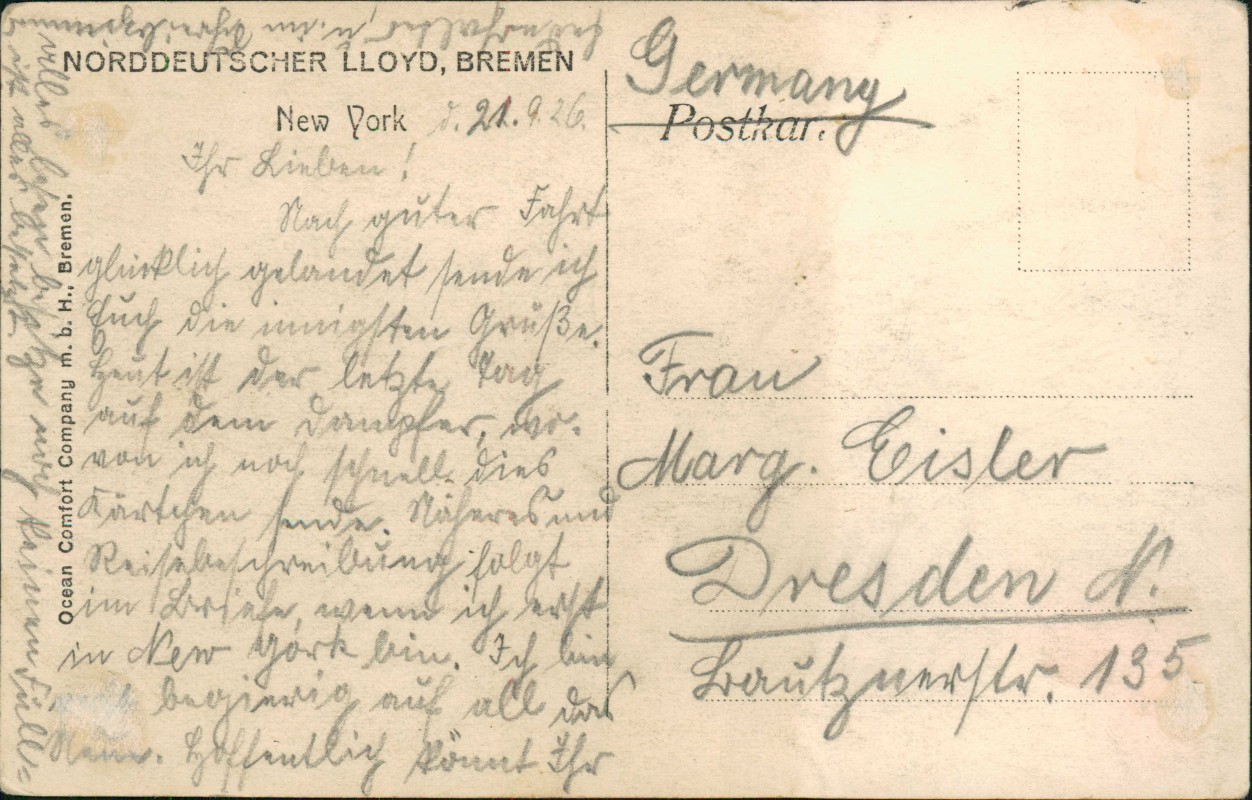 NORDDEUTSCHER LLOYD, BREMEN
New York d. 21.9.26.
Ihr Lieben!
Nach guter Fahrt
glücklich gelandet sende ich
Euch die innigsten Grüße.
Heut ist der letzte Tag
auf dem Dampfer, wo-
von ich noch schnell dies
Kärtchen sende. Näheres und
Reisebeschreibung folgt
im Briefe, wenn ich erst
in New York bin. Ich bin
begierig auf all das
Neue. Hoffentlich könnt Ihr
alles lesen, besitze noch keinen Füll-
federhalter u. im Schreibzimmer
ist alles besetzt.
Ocean Comfort Company m. b. H., Bremen.
Germany
Postkar
Frau
Marg. Eisler
Dresden N.
Bautznerstr. 135